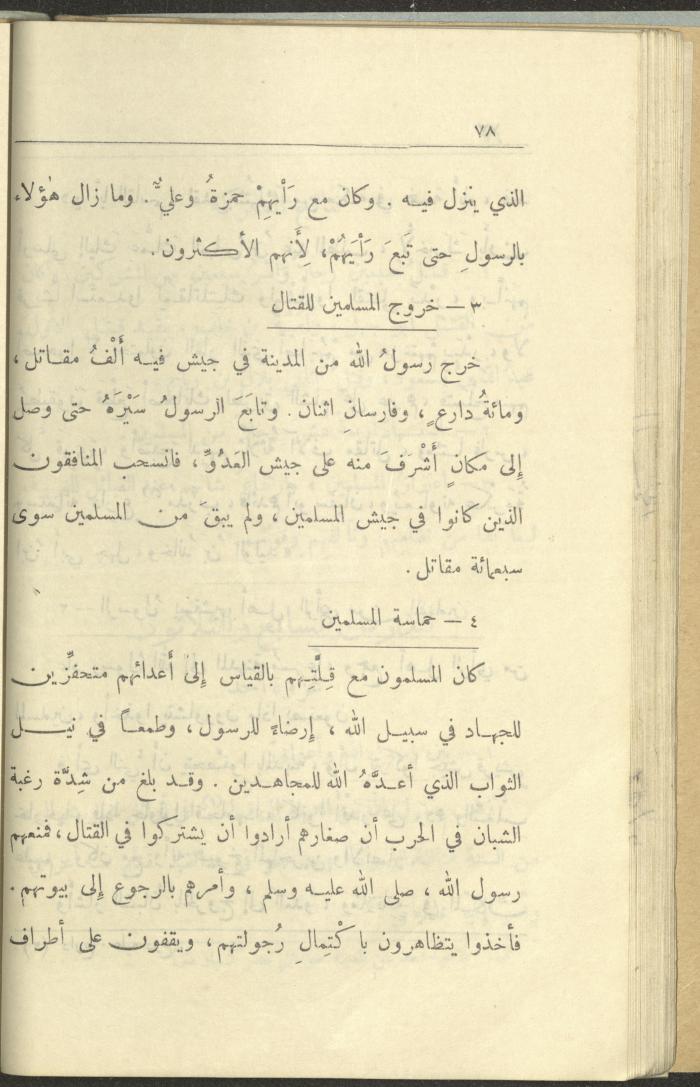 ٧٨
الذي ينزل فيه . وكان مع رَأْيِهِمْ حمزةُ وعليٌّ . وما زال هٰؤلاء
بالرسولِ حتى تَبعَ رَأْيَهُمْ، لِأَنهم الأكثرون .
٣ – خروج المسلمين للقتال
خرج رسولُ الله من المدينة في جيش فيه أَلْفُ مقاتل ،
ومائةُ دارعٍ ، وفارسانِ اثنان . وتابَعَ الرسولُ سَيْرَهُ حتى وصل
إلى مكانٍ أَشْرَفَ منه على جيش العَدُوِّ ، فانسحب المنافقون
الذين كانوا في جيش المسلمين ، ولم يبقَ من المسلمين سوى
سبعمائة مقاتل .
٤ – حماسة المسلمين
كان المسلمون مع قِلَّتِهم بالقياس إلى أعدائهم متحفِّزين
للجهاد في سبيل الله ، إرضاء للرسول ، وطمعاً في نيل
الثواب الذي أعدَّهُ الله للمجاهدين . وقد بلغ من شِدَّة رغبة
الشبان في الحرب أن صغارهم أرادوا أن يشتركوا في القتال ، فمنعهم
رسول الله ، صلى الله عليه وسلم ، وأمرهم بالرجوع إلى بيوتهم .
فأخذوا يتظاهرون باكْتِمالِ رُجولتهم ، ويقفون على أطراف